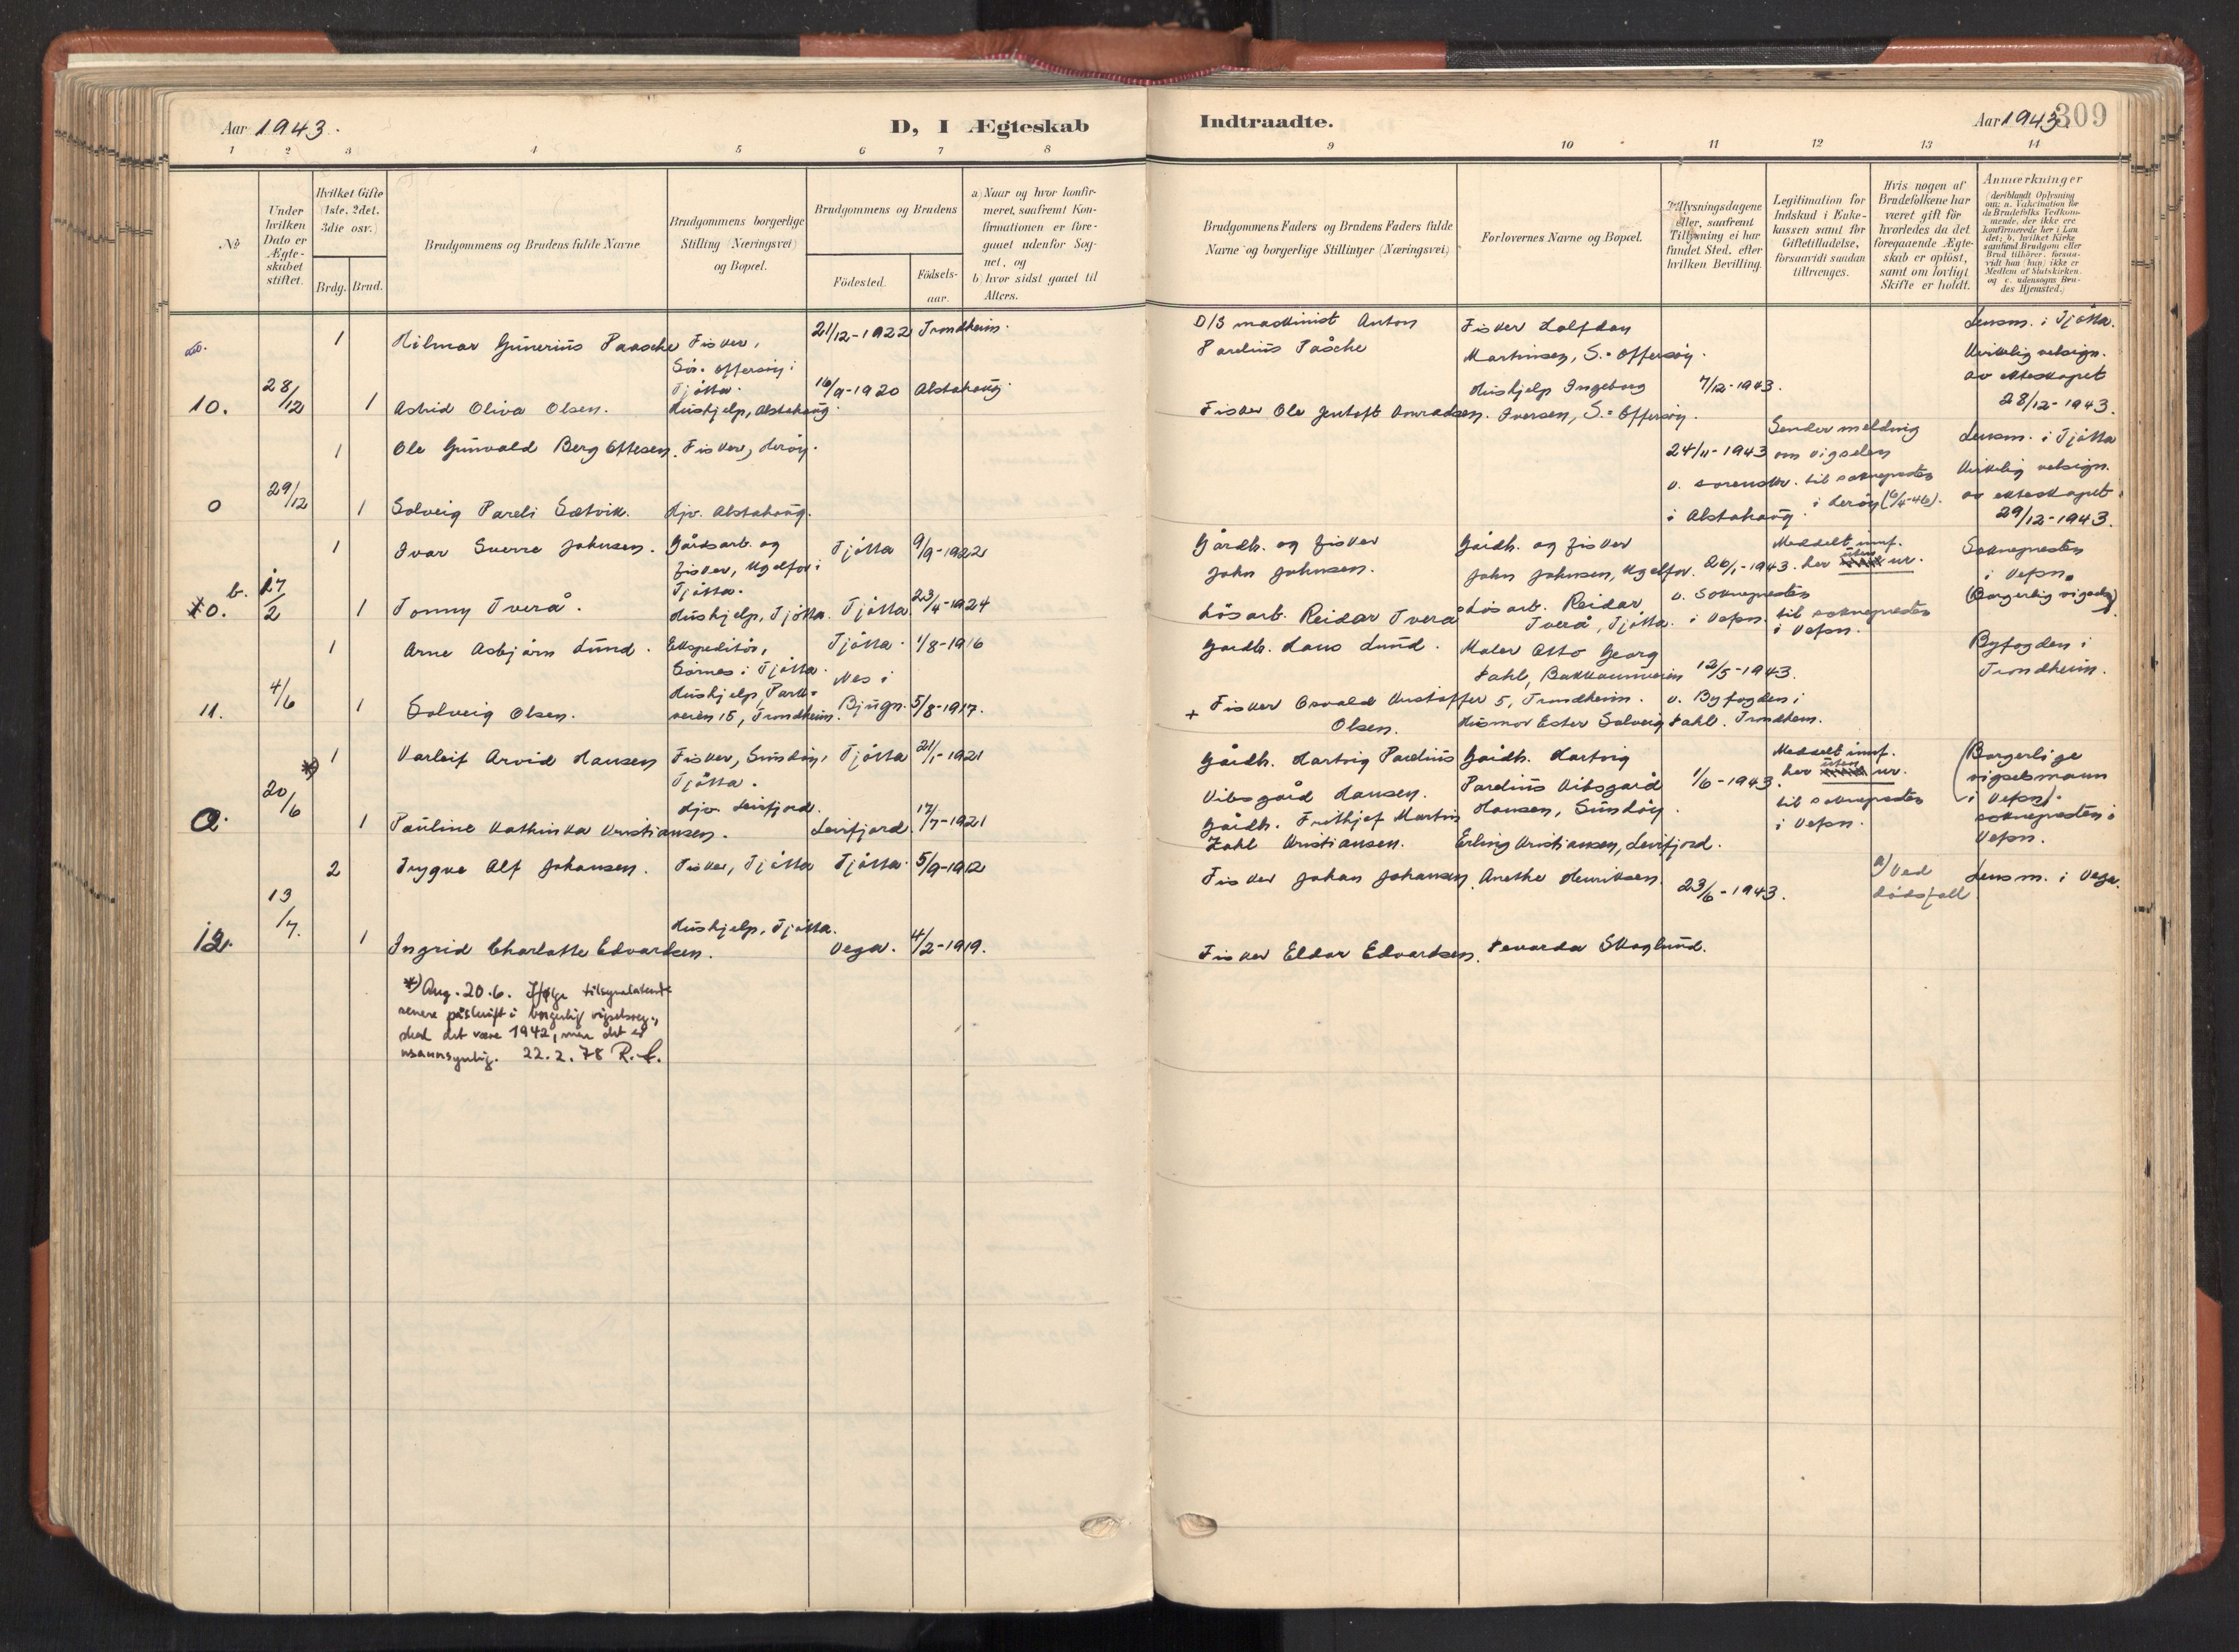 Aar 1943.
D, I Ægteskab
Indtraadte.
Aar 1943.
309
1 2 3 4 5 6 7 8
9 10 11 12 13 14
No
Under hvilken Dato er Ægteskabet stiftet.
Hvilket Gifte (1ste. 2det. 3die osv.)
Brdg. Brud.
Brudgommens og Brudens fulde Navne
Brudgommens borgerlige Stilling (Næringsvei) og Bopæl.
Brudgommens og Brudens
Födested.
Födselsaar.
a) Naar og hvor konfirmeret, saafremt Konfirmationen er foregaaet udenfor Sognet, og
b) hvor sidst gaaet til Alters.
Brudgommens Faders og Brudens Faders fulde Navne og borgerlige Stillinger (Næringsvei)
Forlovernes Navne og Bopæl.
Tillysningsdagene eller, saafremt Tillysning ei har fundet Sted, efter hvilken Bevilling.
Legitimation for Indskud i Enkekassen samt for Giftetilladelse, forsaavidt saadan tiltrænges.
Hvis nogen af Brudefolkene har været gift för hvorledes da det foregaaende Ægteskab er oplöst, samt om lovligt Skifte er holdt.
Anmærkninger
(deriblandt Oplysning om: a. Vakcination for de Brudefolks Vedkommende, der ikke ere konfirmerede her i Landet; b. hvilket Kirkesamfund Brudgom eller Brud tilhörer, forsaavidt han (hun) ikke er Medlem af Statskirken og c. udensogns Brudes Hjemsted.)
10.
28/12
1
Hilmar Gunerius Paasche
Fisker,
Sør-Offersøy i
Tjøtta.
21/12-1922 Trondheim.
D/S maskinist Anton
Parelius Påsche
Fisker Halfdan
Martinsen, S.-Offersøy.
Lensm. i Tjøtta.
Kirkelig velsign.
av ekteskapet
28/12-1943.
1
Astrid Oliva Olsen.
Hushjelp, Alstahaug.
16/9-1920 Alstahaug.
Fisker Ole Jentoft Konradsen.
Hushjelp Ingeborg
Iversen, S.-Offersøy.
7/12-1943.
0
29/12
1
Ole Gunvald Berg Ottesen.
Fisker, Herøy.
24/11-1943
v. sorenskr.
i Alstahaug
Sender melding
om vigselen
til sokneprester
i Herøy (6/4-46).
Lensm. i Tjøtta
Kirkelig velsign.
av ekteskapet
29/12-1943.
1
Solveig Pareli Sætvik.
Hjv. Alstahaug.
b.
0.
17/2
1
Ivar Sverre Johnsen.
Gårdsarb. og
fisker, Ugelfor i
Tjøtta.
Tjøtta
9/9-1922
Gårdb. og fisker
John Johnsen.
Gårdb. og fisker
John Johnsen, Ugelfor.
26/1-1943.
v. Soknepresten
i Vefsn.
Meddelt innf.
her uten nr.
til sokneprester
i Vefsn.
Sokneprester
i Vefsn.
(Borgerlig vigsel)
1
Tonny Tverå.
Hushjelp, Tjøtta.
Tjøtta
23/4-1924
Løsarb. Reidar Tverå
Løsarb. Reidar
Tverå, Tjøtta.
11.
4/6
1
Arne Asbjørn Lund.
Ekspeditør,
Sørnes i Tjøtta.
Tjøtta.
1/8-1916
Gårdb. Hans Lund.
Maler Otto Georg
Dahl, Bakkaunveien
5, Trondheim.
12/5-1943.
v. Byfogden i
Trondheim.
Byfogden i
Trondheim.
1
Solveig Olsen.
Hushjelp, Park-
veien 15, Trondheim.
Nes i
Bjugn.
5/8-1917.
+ Fisker Osvald Kristoffer
Olsen.
Husmor Ester Solveig Dahl.
0.
*)
20/6
1
Karleif Arvid Hansen
Fisker, Sundøy,
Tjøtta.
Tjøtta
21/1-1921
Gårdb. Hartvig Parelius
Vibsgård Hansen.
Gårdb. Hartvig
Parelius Vibsgård
Hansen, Sundøy.
1/6-1943.
Meddelt innf.
her uten nr.
til sokneprester
i Vefsn.
(Borgerlige
vigselsmann
i Vefsn).
sokneprester i
Vefsn.
1
Pauline Kathinka Kristiansen.
Hjv. Leirfjord.
Leirfjord.
17/7-1921
Gårdb. Fritjof Martin
Zahl Kristiansen.
Erling Kristiansen, Leirfjord.
12.
13/7.
2
Trygve Alf Johansen.
Fisker, Tjøtta
Tjøtta.
5/9-1912
Fisker Johan Johansen.
Anethe Henriksen.
23/6-1943.
a) Ved
dødsfall
Lensm. i Vega.
1
Ingrid Charlotte Edvardsen.
Hushjelp, Tjøtta.
Vega.
4/2-1919.
Fisker Eldor Edvardsen.
Hevarda Skoglund.
*) Ang. 20.6. Ifølge tilsynelatende
senere påskrift i borgerlig vigselsreg.,
skal det være 1942, men det er
usannsynlig. 22.2.78 R.L.